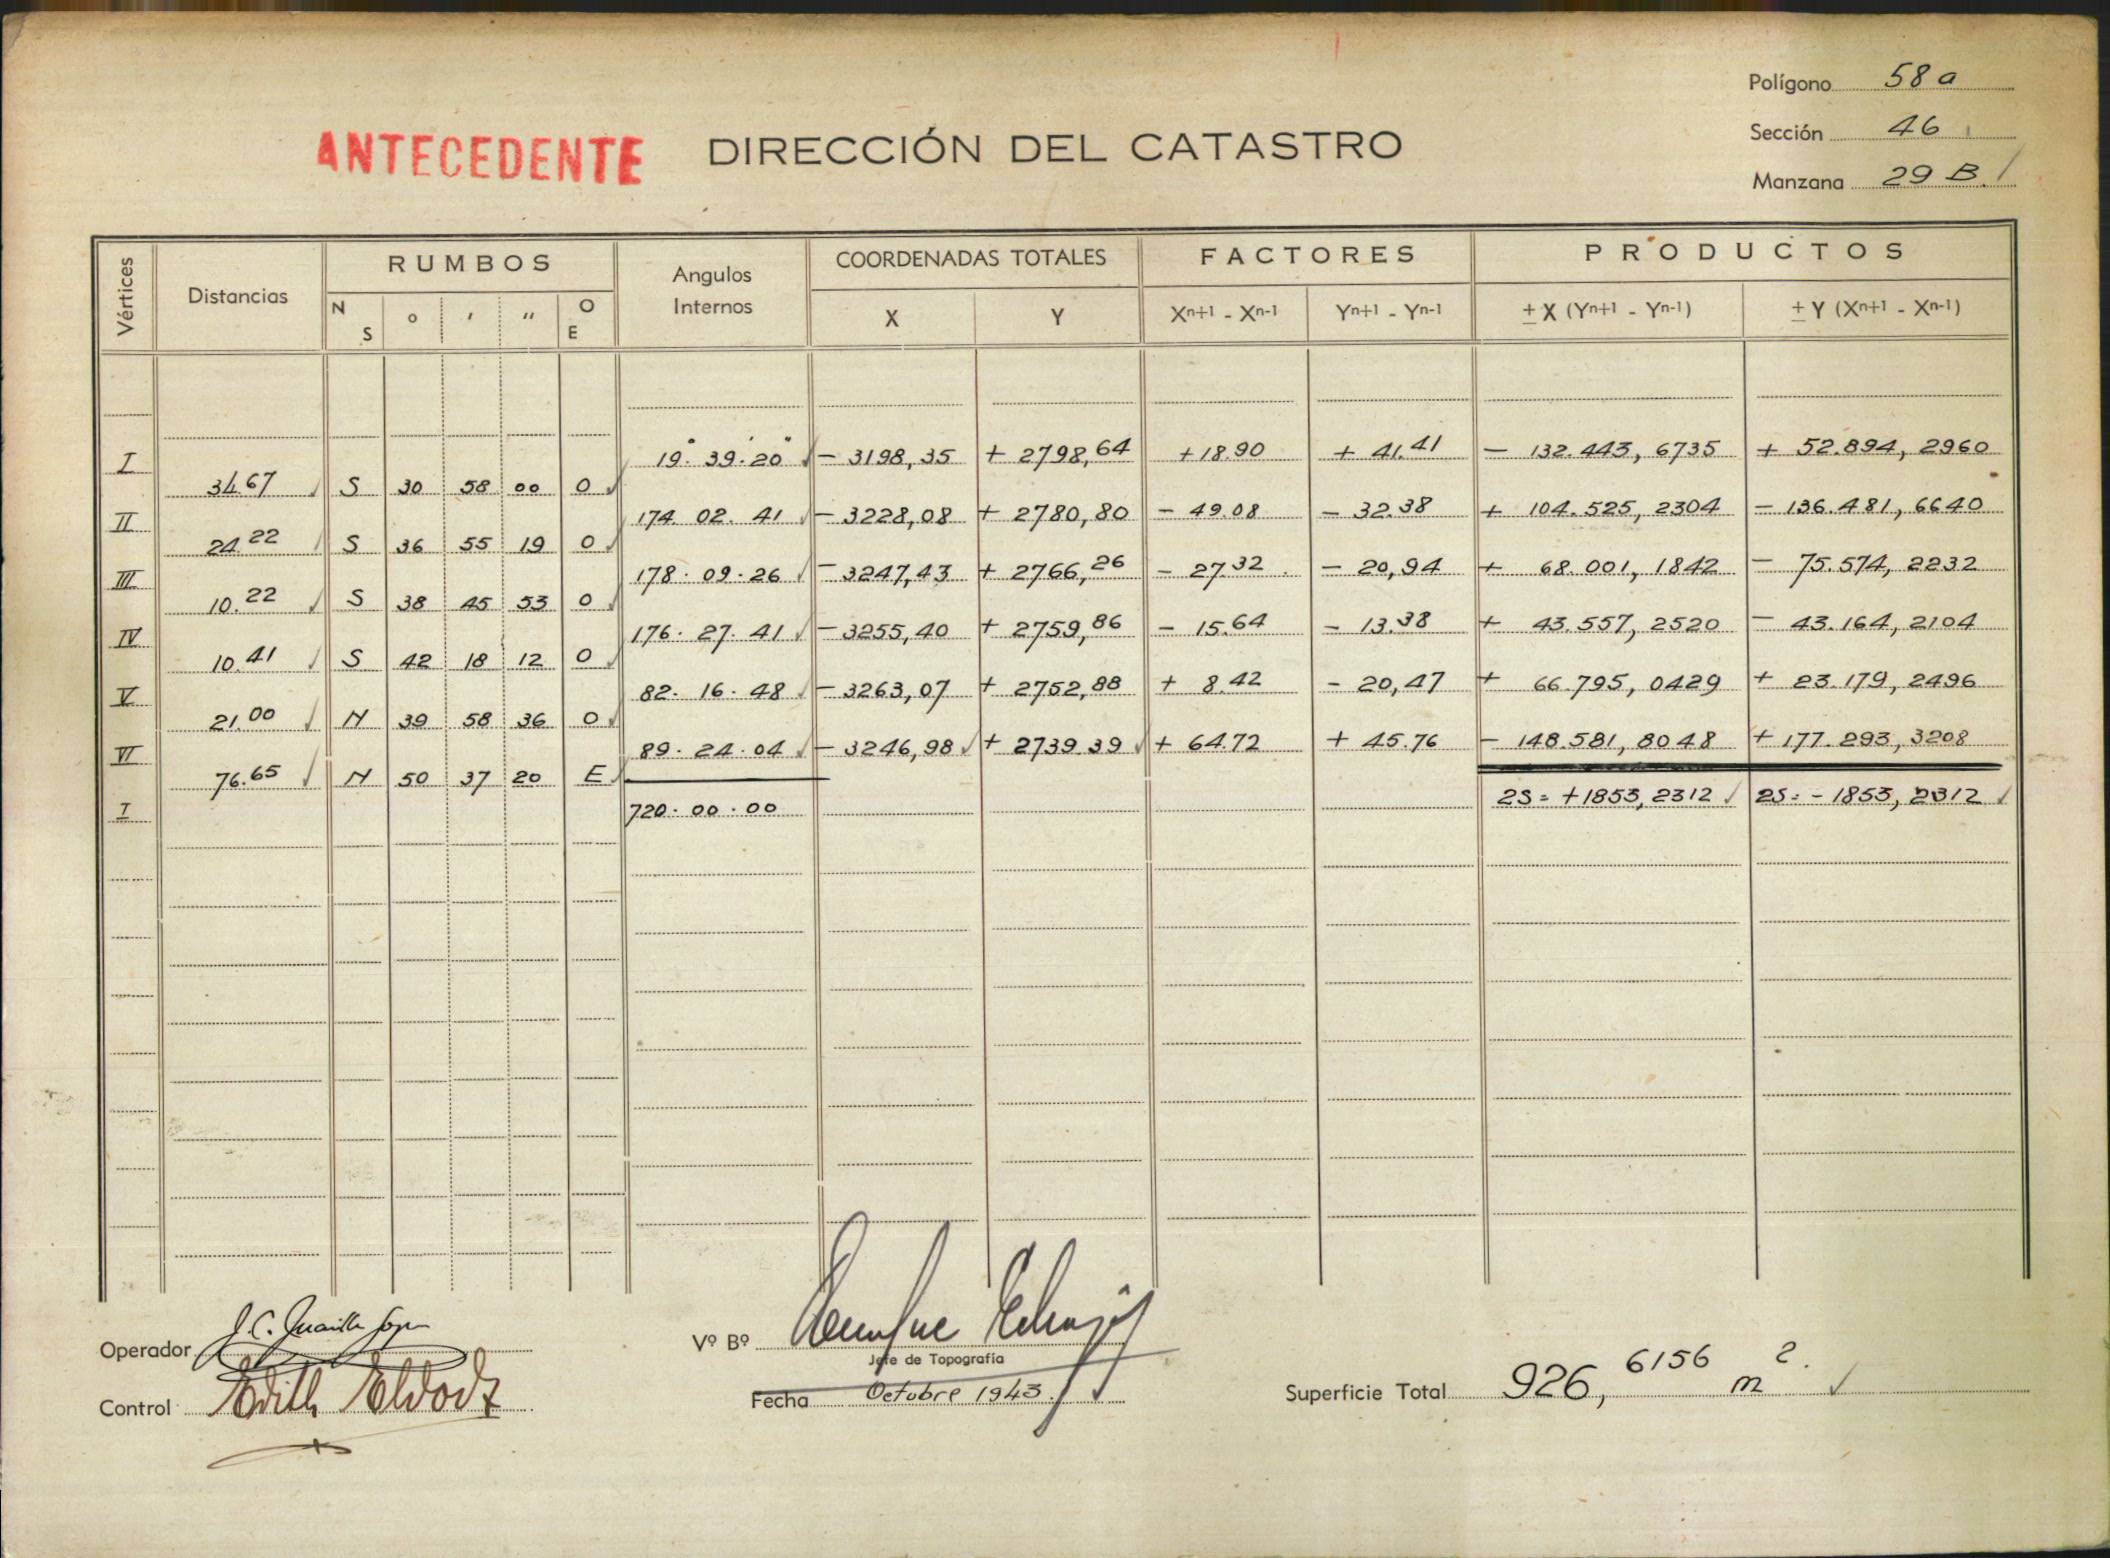 Polígono 58 a
Sección 46
Manzana 29 B.
ANTECEDENTE DIRECCIÓN DEL CATASTRO
Vértices Distancias RUMBOS Angulos Internos COORDENADAS TOTALES FACTORES PRODUCTOS
N S ° ' " O E X Y Xn+1 - Xn-1 Yn+1 - Yn-1 ± X (Yn+1 - Yn-1) ± Y (Xn+1 - Xn-1)
I 19° 39' 20" - 3198,35 + 2798,64 + 18.90 + 41.41 - 132.443, 6735 + 52.894, 2960
34.67 S 30 58 00 O
II 174. 02. 41 - 3228,08 + 2780,80 - 49.08 - 32.38 + 104.525, 2304 - 136.481, 6640
24.22 S 36 55 19 O
III 178. 09. 26 - 3247,43 + 2766,26 - 27.32 - 20,94 + 68.001, 1842 - 75.574, 2232
10.22 S 38 45 53 O
IV 176. 27. 41 - 3255,40 + 2759,86 - 15.64 - 13.38 + 43.557, 2520 - 43.164, 2104
10.41 S 42 18 12 O
V 82. 16. 48 - 3263,07 + 2752,88 + 8.42 - 20,47 + 66.795, 0429 + 23.179, 2496
21.00 N 39 58 36 O
VI 89. 24. 04 - 3246,98 + 2739.39 + 64.72 + 45.76 - 148.581, 8048 + 177.293, 3208
76.65 N 50 37 20 E
I 720. 00. 00 2S = +1853, 2312 2S = - 1853, 2312
Operador J. C.
Control Edith
Vº Bº Enrique
Jefe de Topografía
Fecha Octubre 1943.
Superficie Total 926, 6156 m2.